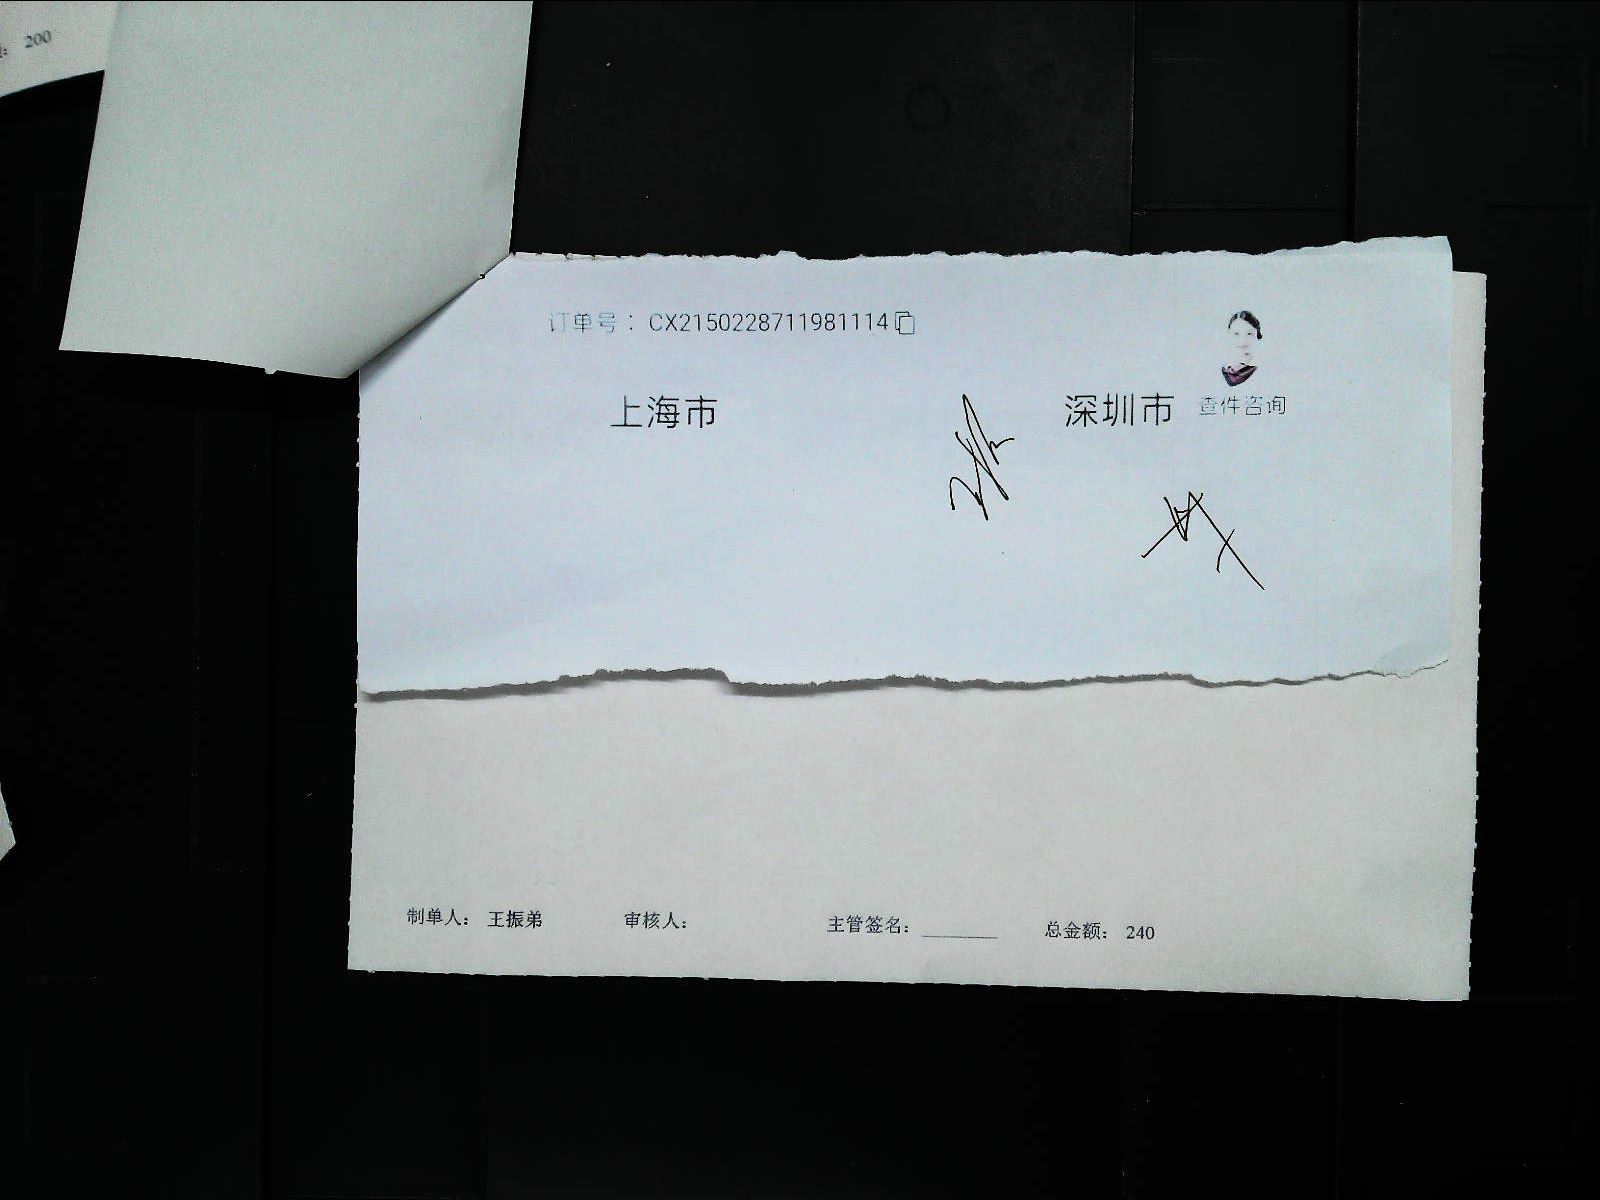 200
订单号：CX2150228711981114
上海市
深圳市
查件咨询
制单人： 王振弟 审核人： 主管签名：________ 总金额： 240